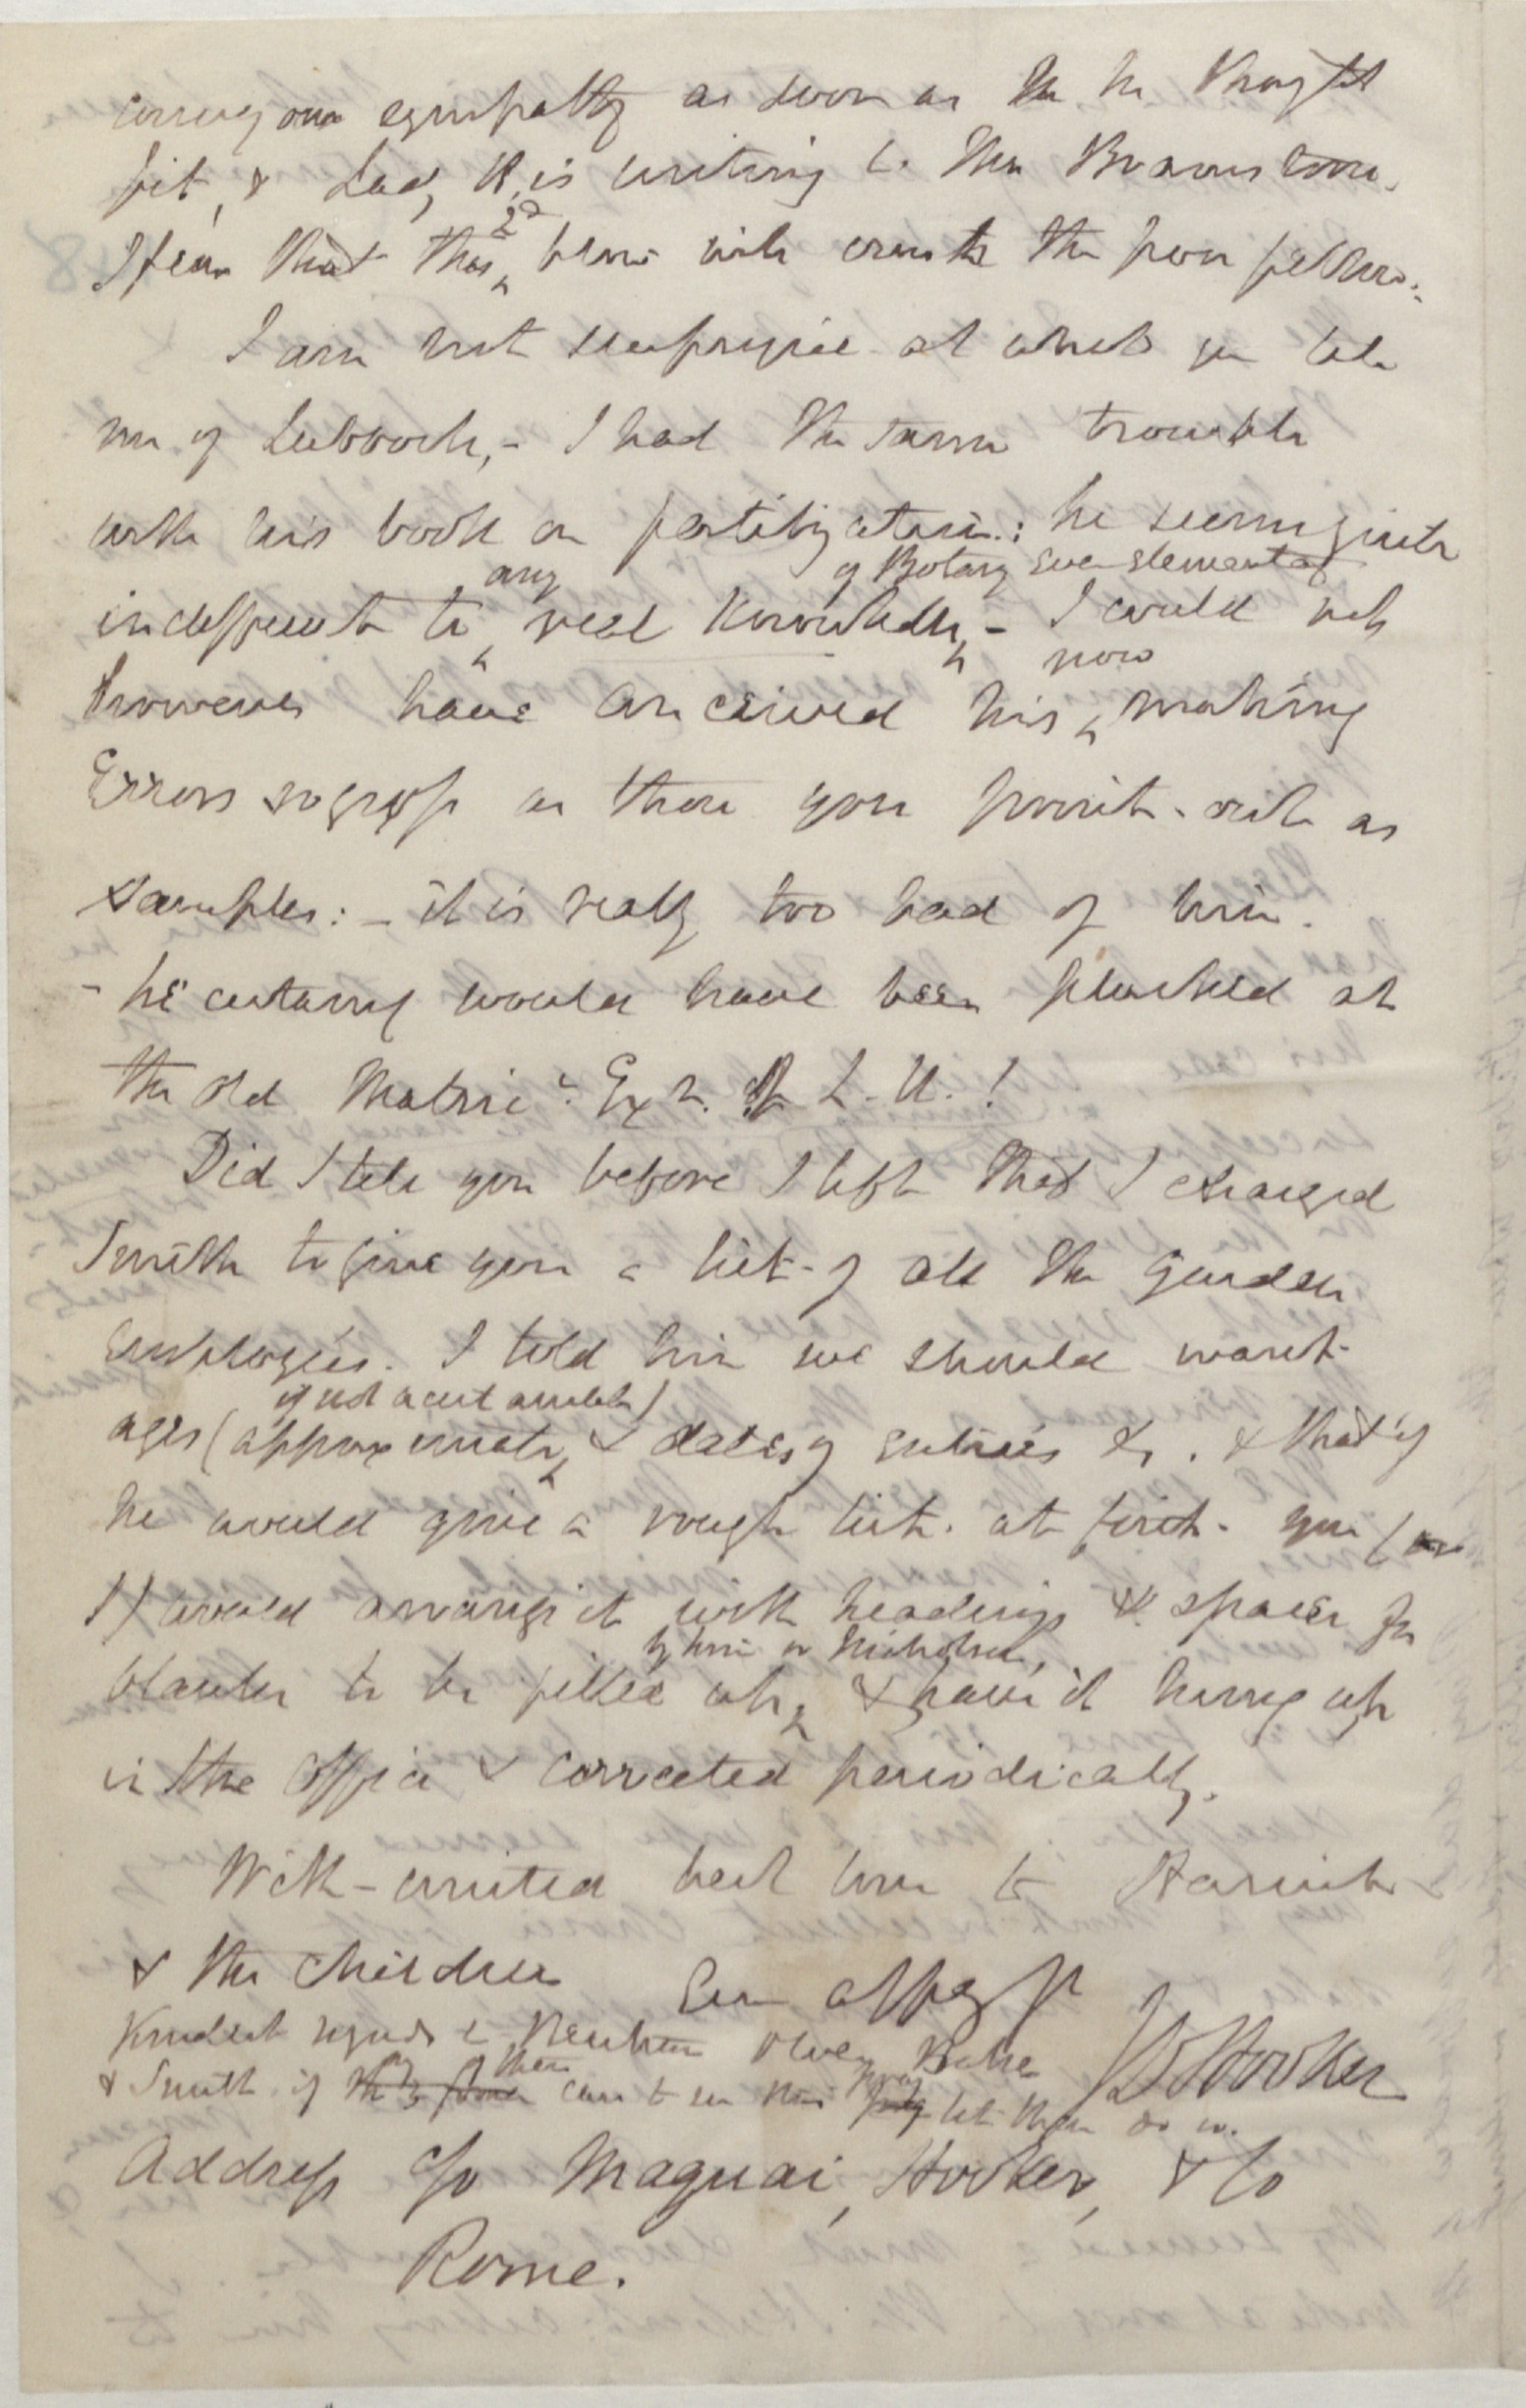 convey our sympathy as soon as he thought
fit, & Lady H. is writing to
I fear that this 2d blow will crush the poor fellow.
I am not surprise at what you tell
me of Lubbock, - I had the same trouble
with his book on fertilization: he seems quite
indifferent to any real knowledge of Botany even elementary - I could not
however have conceived his now making
Errors so gross as those you point out as
samples: - it is really too bad of him.
- he certainly would have been plucked at
the old Matric. Exn. of L. U.!
Did I tell you before I left that I charged
Smith to give you a list of all the Garden
employées. I told him we should want
ages (approximate if not accurate) & dates of entries &c. & that if
he would give a rough list at first you (or
I) would arrange it with headings & spaces for
blanks to be filled up by him or Nicholson, & have it hung up
in the office & corrected periodically.
With united best love to Harriet
& the children Ever affecy yr
Kindest regards to Oliver Baker JD Hooker
& Smith if any of them care to see this pray let them do so.
Address c/o Maquai, Hooker, & Co
Rome.